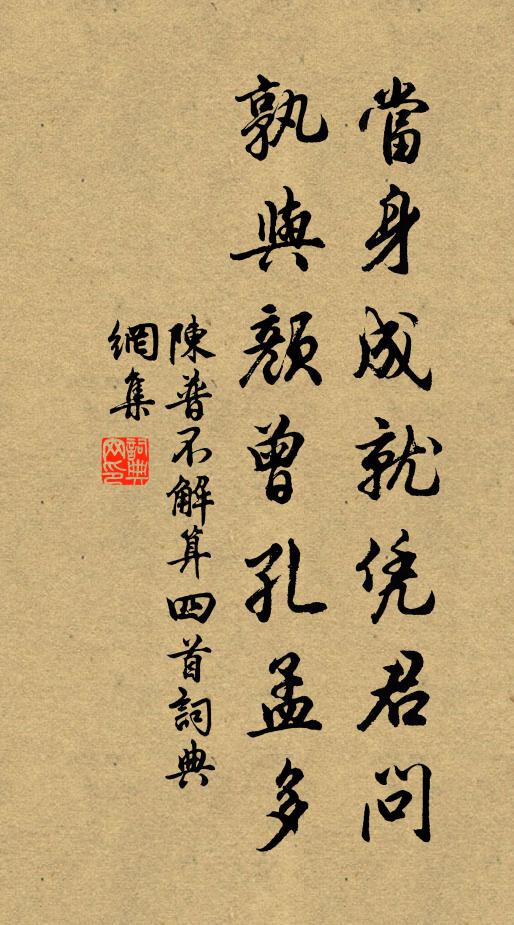 當身成就凭君問
孰與顏曾孔孟多
陳普不解算四首詞典
網集
詞典
网印